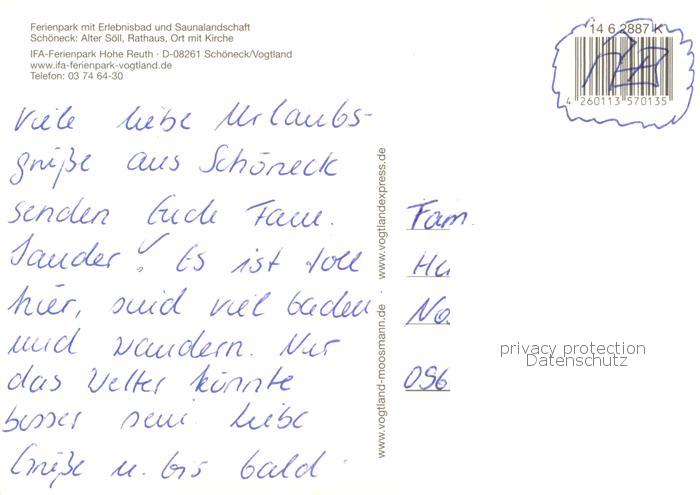 Ferienpark mit Erlebnisbad und Saunalandschaft
Schöneck: Alter Söll, Rathaus, Ort mit Kirche
IFA-Ferienpark Hohe Reuth · D-08261 Schöneck/Vogtland
www.ifa-ferienpark-vogtland.de
Telefon: 03 74 64-30
14 6 2887 K
4 260113 570135
Viele liebe Urlaubs-
grüße aus Schöneck
senden Euch Fam.
Sander! Es ist toll
hier, sind viel baden
und wandern. Nur
das Wetter könnte
besser sein. Liebe
Grüße u. bis bald.
www.vogtland-moosmann.de · www.vogtlandexpress.de
Fam.
Hu
No
096
privacy protection
Datenschutz